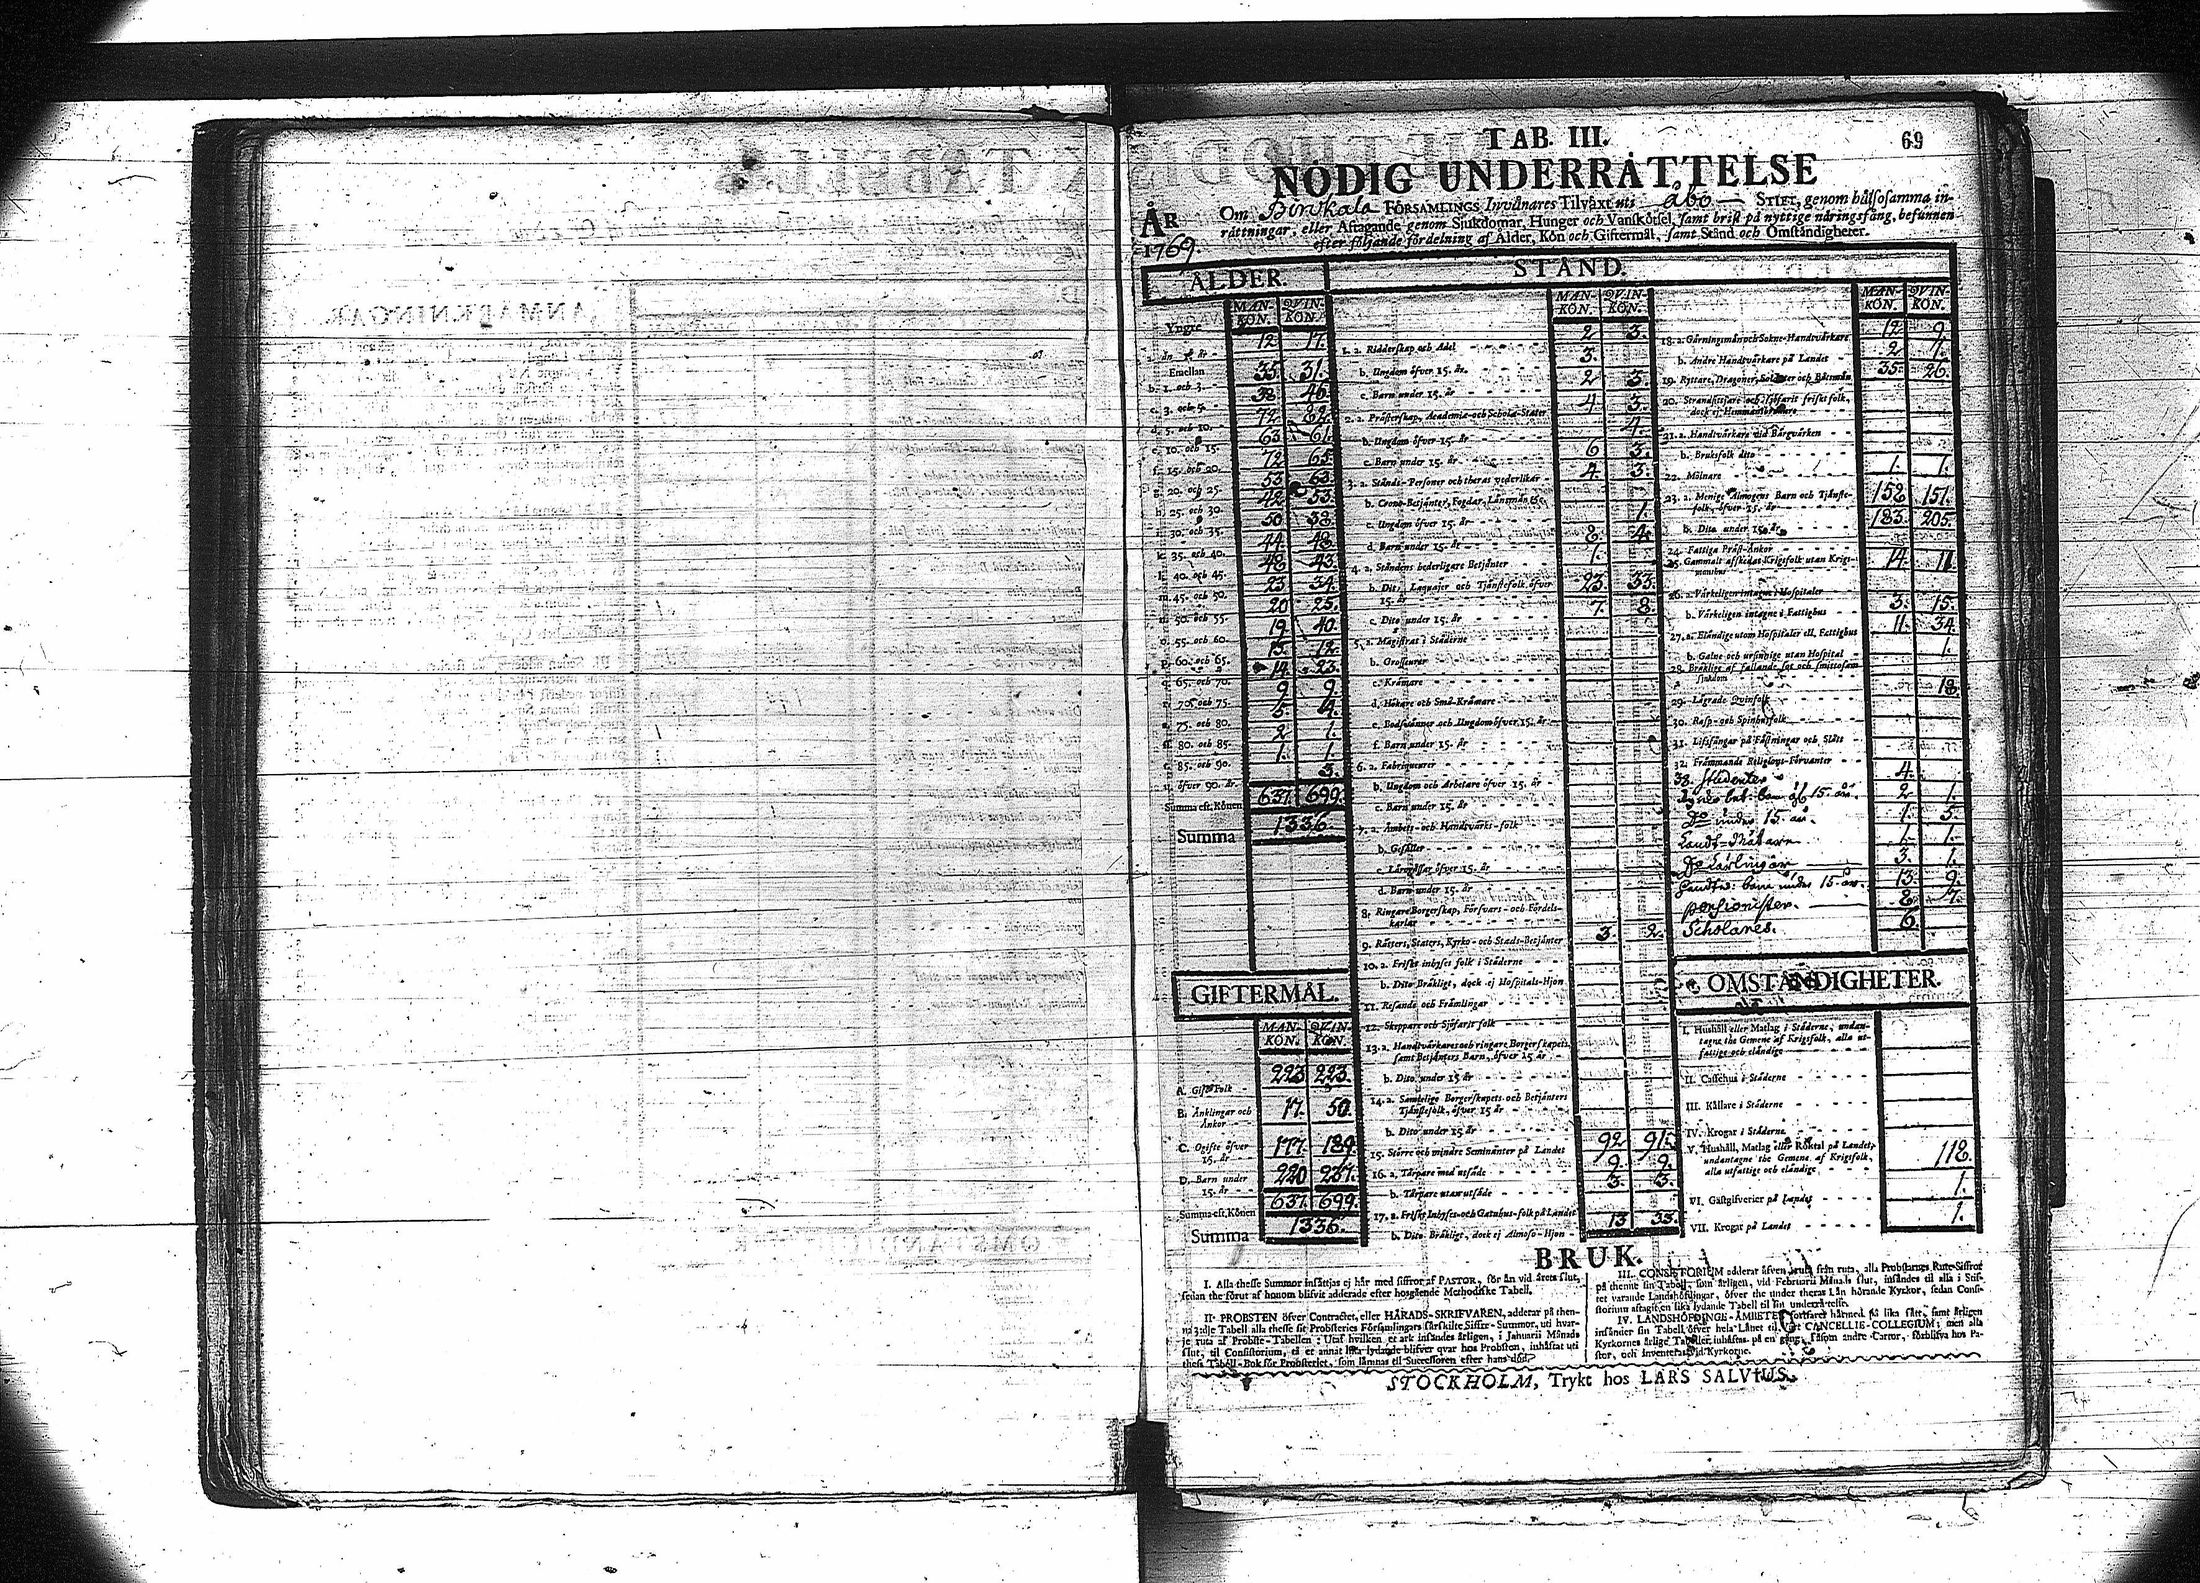 TAB. III.
69
NÖDIG UNDERRÄTTELSE
ÅR 1769.
Om Birkala FÖRSAMLINGS Invånares Tilväxt uti Åbo STIFT, genom hälsosamma in-
rättningar, eller Aftagande genom Sjukdomar, Hunger och Vanskötsel, samt brist på nyttige näringsfång, befunnen
efter följande fördelning af Ålder, Kön och Giftermål, samt Stånd och Omständigheter.
ÅLDER.
MAN-KÖN. QVIN-KÖN.
Yngre
a. än 1 år 12 17.
Emellan
b. 1. och 3. 35. 31.
c. 3. och 5. 38 46.
d. 5. och 10. 72. 82.
e. 10. och 15. 63. 61.
f. 15. och 20. 72 65
g. 20. och 25. 55 63.
h. 25. och 30. 42. 53.
i. 30. och 35. 50 38.
k. 35. och 40. 44. 48.
l. 40. och 45. 48. 43.
m. 45. och 50. 23 34.
n. 50. och 55. 20 25.
o. 55. och 60. 19. 40.
p. 60. och 65. 15. 12.
q. 65. och 70. 14. 23.
r. 70. och 75. 9. 9.
s. 75. och 80. 5. 4.
ss. 80. och 85. 2. 1.
t. 85. och 90. 1. 1.
u. öfver 90. år 3.
Summa eft. Könen 637. 699.
Summa 1336.
GIFTERMÅL.
MAN-KÖN. QVIN-KÖN.
A. Gift Folk 223 223.
B. Änklingar och Änkor 17. 50.
C. Ogifte öfver 15. år 177. 189.
D. Barn under 15. år 220 237.
Summa eft. Könen 637. 699.
Summa 1336.
STÅND.
MAN-KÖN. QVIN-KÖN.
1. a. Ridderskap och Adel 2 3.
b. Ungdom öfver 15. år. 3.
c. Barn under 15. år 2 3.
2. a. Prästerskap, Academiæ- och Scholæ-Stater 4 3.
b. Ungdom öfver 15. år 4.
c. Barn under 15. år 6 3.
3. a. Stånds-Personer och theras vederlikar 4 3.
b. Crono-Betjänter, Fogdar, Länsmän &c.
c. Ungdom öfver 15. år 1.
d. Barn under 15. år 2. 4.
4. a. Ståndens hederligare Betjänter 1.
b. Dito, Laquajer och Tjänstefolk öfver 15. år 23 33.
c. Dito under 15. år 7. 8.
5. a. Magistrat i Städerne
b. Grosseurer
c. Krämare
d. Hökare och Små-Krämare
e. Bodsvänner och Ungdom öfver 15. år
f. Barn under 15. år
6. a. Fabriqueurer
b. Ungdom och Arbetare öfver 15. år
c. Barn under 15. år
7. a. Ämbets- och Handtvärks-folk
b. Gesäller
c. Lärogossar öfver 15. år
d. Barn under 15. år
8. Ringare Borgerskap, Försvars- och Fördels-karlar
9. Rätters, Staters, Kyrko- och Stads-Betjänter 3. 2.
10. a. Friskt inhyses folk i Städerne
b. Dito Bräkligt, dock ej Hospitals-Hjon
11. Resande och Främlingar
12. Skeppare och Sjöfarit folk
13. a. Handtvärkares och ringare Borgerskapets, samt Betjänters Barn, öfver 15 år
b. Dito under 15 år
14. a. Samtelige Borgerskapets och Betjänters Tjänstefolk, öfver 15 år
b. Dito under 15 år
15. Större och mindre Seminanter på Landet 92 91.
16. a. Torpare med utsäde 9. 9.
b. Torpare utan utsäde 3. 3.
17. a. Friskt Inhyses- och Gatuhus-folk på Landet
b. Dito Bräkligt, dock ej Almoso-Hjon 13 33.
MAN-KÖN. QVIN-KÖN.
18. a. Gärningsmän och Sokne-Handtvärkare 12 9.
b. Andre Handtvärkare på Landet 2 1.
19. Ryttare, Dragoner, Soldater och Båtsmän 35. 26.
20. Strandsittjare och sjöfarit friskt folk, dock ej Hemmansbrukare
21. a. Handtvärkare vid Bärgvärken
b. Bruksfolk dito
22. Mölnare 1. 1.
23. a. Menige Almogens Barn och Tjänste-folk, öfver 15. år 152 151.
b. Dito under 15. år 183. 205.
24. Fattiga Präst-Änkor
25. Gammalt afskedat Krigsfolk utan Krigsmanshus 14. 11
26. a. Värkeligen intagne i Hospitaler
b. Värkeligen intagne i Fattighus 3. 15.
27. a. Eländige utom Hospitaler ell. Fattighus 11. 34
b. Galne och ursinnige utan Hospital 1.
28. Bräklige af fallande sot och smittosam sjukdom
29. Lägrade Qvinfolk 18.
30. Rasp- och Spinhusfolk
31. Lifsfångar på Fästningar och Slått
32. Främmande Religions-Förvanter
33. Studenter 4.
15. år. 2 1.
Do under 15. år. 1. 5.
1. 1.
3. 1.
barn under 15. år. 13. 9.
pensionister. 2. 7.
Scholares. 6.
OMSTÄNDIGHETER.
I. Hushåll eller Matlag i Städerne, undantagne the Gemene af Krigsfolk, alla utfattige och eländige
II. Caffehus i Städerne
III. Källare i Städerne
IV. Krogar i Städerne
V. Hushåll, Matlag eller Röktal på Landet, undantagne the Gemene af Krigsfolk, alla utfattige och eländige 118.
VI. Gästgifverier på Landet 1.
VII. Krogar på Landet 1.
BRUK.
I. Alla thesse Summor insättjas ej här med siffror af PASTOR, för än vid årets slut,
sedan the förut af honom blifvit adderade efter hosgående Methodiske Tabell.
II. PROBSTEN öfver Contractet, eller HÄRADS-SKRIFVAREN, adderar på then-
na 3:dje Tabell alla thesse sit Probsteries Församlingars särskilte Siffre-Summor, uti hvar-
je ruta af Probste-Tabellen; Utaf hvilken et ark insändes årligen, i Januarii Månads
slut, til Consistorium, et annat lika lydande blifver qvar hos Probsten, inhäftat uti
thess Tabell-Bok för Probsteriet, som lämnas til Successoren efter hans död.
III. CONSISTORIUM adderar äfven ruta från ruta, alla Probstarnes Rute-Siffror
på thenne sin Tabell, som årligen, vid Februarii Månads slut, insändes til alla i Stif-
tet varande Landshöfdingar, öfver the under theras Län hörande Kyrkor, sedan Consi-
storium aftagit en lika lydande Tabell til sin underrättelse.
IV. LANDSHÖFDINGE-ÄMBETET fortfarer härmed på lika sätt, samt årligen
insänder sin Tabell öfver hela Länet til CANCELLIE-COLLEGIUM; men alla
Kyrkornes årlige Tabeller inhäftas på en gång, såsom andre Cartor, förblifva hos Pa-
stor, och inventeras vid Kyrkorne.
STOCKHOLM, Trykt hos LARS SALVIUS.